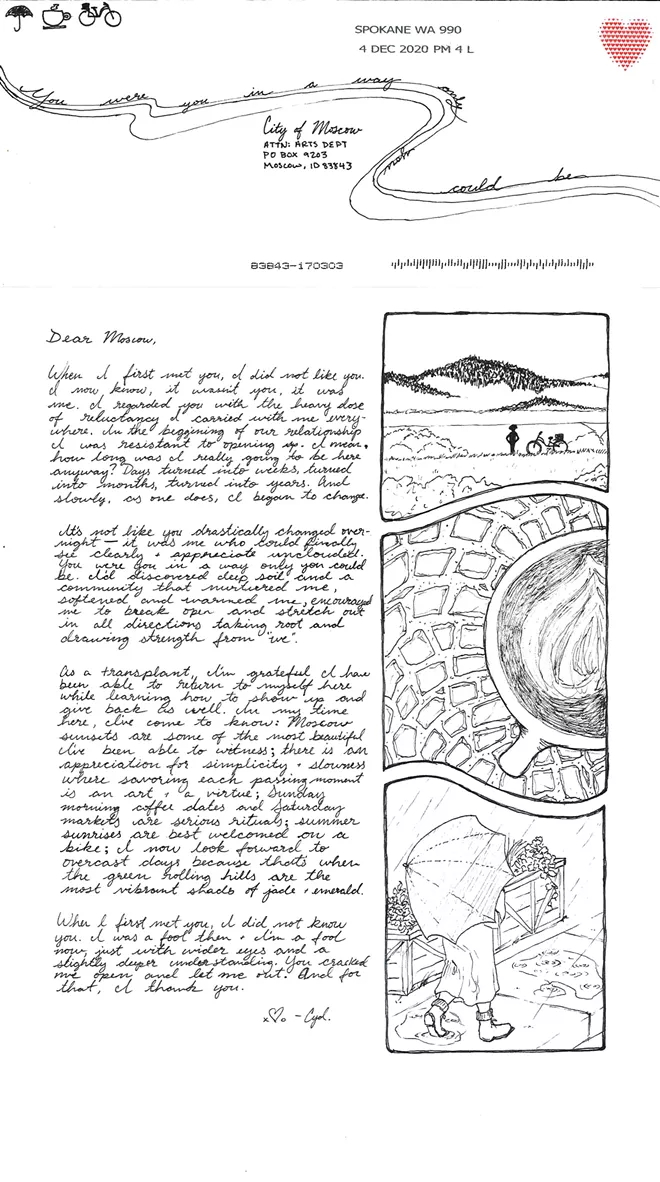 SPOKANE WA 990
4 DEC 2020 PM 4 L
You were you in a way only you could be
City of Moscow
ATTN: ARTS DEPT
PO BOX 9203
MOSCOW, ID 83843
83843-170303
Dear Moscow,
When I first met you, I did not like you.
I now know, it wasn't you, it was
me. I regarded you with the heavy dose
of reluctancy I carried with me every-
where. In the beggining of our relationship
I was resistant to opening up. I mean,
how long was I really going to be here
anyway? Days turned into weeks, turned
into months, turned into years. And
slowly, as one does, I began to change.
It's not like you drastically changed over-
night — it was me who could finally
see clearly + appreciate unclouded.
You were you in a way only you could
be. I'd discovered deep soil and a
community that nurtured me,
softened and warmed me, encouraged
me to break open and stretch out
in all directions taking root and
drawing strength from "we".
As a transplant, I'm grateful I have
been able to return to myself here
while learning how to show up and
give back as well. In my time
here, I've come to know: Moscow
sunsets are some of the most beautiful
I've been able to witness; there is an
appreciation for simplicity + slowness
where savoring each passing moment
is an art + a virtue; Sunday
morning coffee dates and Saturday
markets are serious rituals; summer
sunrises are best welcomed on a
bike; I now look forward to
overcast days because that's when
the green rolling hills are the
most vibrant shads of jade + emerald.
When I first met you, I did not know
you. I was a fool then + I'm a fool
now, just with wider eyes and a
slightly deeper understanding. You cracked
me open and let me out. And for
that, I thank you.
x♡o -Cyd.